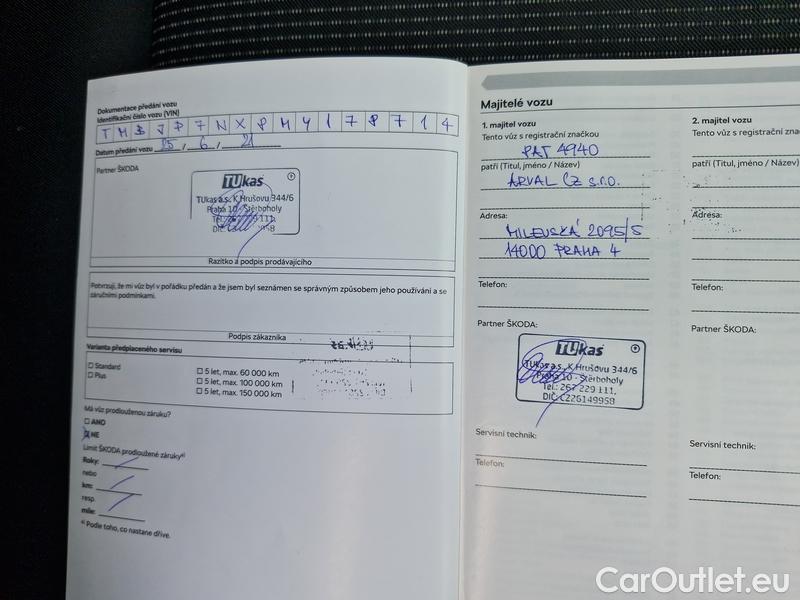 Dokumentace předání vozu
Identifikační číslo vozu (VIN)
T M B J P 7 N X 8 M Y 1 7 8 7 1 4
Datum předání vozu 25 , 6 , 21
Partner ŠKODA
TUkas
TUkas a.s., K Hrušovu 344/6
Praha 10 - Štěrboholy
Tel.: 267 229 111,
DIČ:
Razítko a podpis prodávajícího
Potvrzuji, že mi vůz byl v pořádku předán a že jsem byl seznámen se správným způsobem jeho používání a se
záručními podmínkami.
Podpis zákazníka
Varianta předplaceného servisu
☐ Standard
☐ Plus
☐ 5 let, max. 60 000 km
☐ 5 let, max. 100 000 km
☐ 5 let, max. 150 000 km
Má vůz prodlouženou záruku?
☐ ANO
☒ NE
Limit ŠKODA prodloužené záruky a)
Roky:
nebo
km:
resp.
míle:
a) Podle toho, co nastane dříve.
Majitelé vozu
1. majitel vozu
Tento vůz s registrační značkou
patří (Titul, jméno / Název)
ARVAL CZ s.r.o.
Adresa:
MILEVSKÁ 2095/5
14000 PRAHA 4
Telefon:
Partner ŠKODA:
TUkas
TUkas a.s., K Hrušovu 344/6
Praha 10 - Štěrboholy
Tel.: 267 229 111,
DIČ: CZ26149958
Servisní technik:
Telefon:
2. majitel vozu
Tento vůz s registrační
patří (Titul, jméno / Název)
Adresa:
Telefon:
Partner ŠKODA:
Servisní technik:
Telefon:
CarOutlet.eu